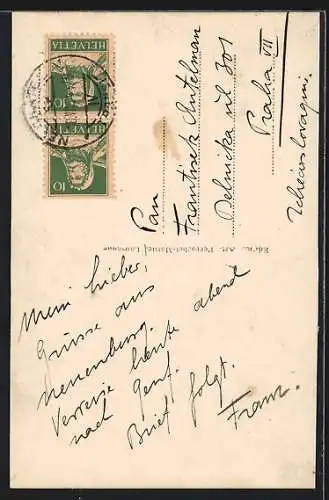 HELVETIA
10
HELVETIA
10
Pan
Frantisek Antelman
Delnicka ul 301
Praha VII
Tchécoslovaquie.
Edit. Art. Perrochet-Matile, Lausanne
Mein Lieber,
Grüsse aus
Neuenburg.
Verreise heute abend
nach Genf.
Brief folgt.
Franz.